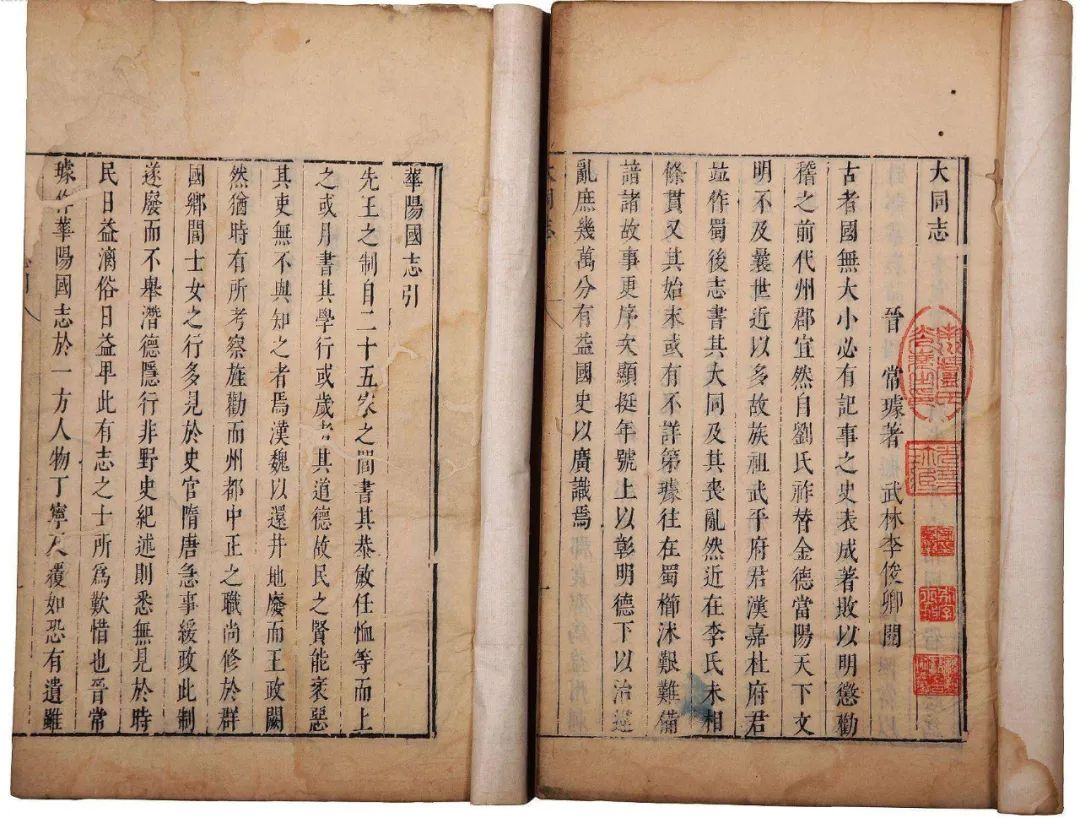 大同志
晉 常璩著 武林李俊卿閱
古者國無大小必有記事之史表成著敗以明懲勸
稽之前代州郡宜然自劉氏祚替金德當陽天下文
明不及曩世近以多故族祖武平府君漢嘉杜府君
並作蜀後志書其大同及其喪亂然近在李氏未相
條貫又其始末或有不詳第璩往在蜀櫛沐艱難備
諳諸故事更序次顯挺年號上以彰明德下以治違
亂庶幾萬分有益國史以廣識焉
華陽國志引
先王之制自二十五家之閭書其恭敏任恤等而上
之或月書其學行或歲考其道德故民之賢能衺惡
其吏無不與知之者焉漢魏以還井地廢而王政闕
然猶時有所考察旌勸而州都中正之職尚修於群
國鄉閭士女之行多見於史官隋唐急事緩政此制
遂廢而不舉潛德隱行非野史紀述則悉無見於時
民日益漓俗日益卑此有志之士所為歎惜也晉常
璩作華陽國志於一方人物丁寧反覆如恐有遺雖